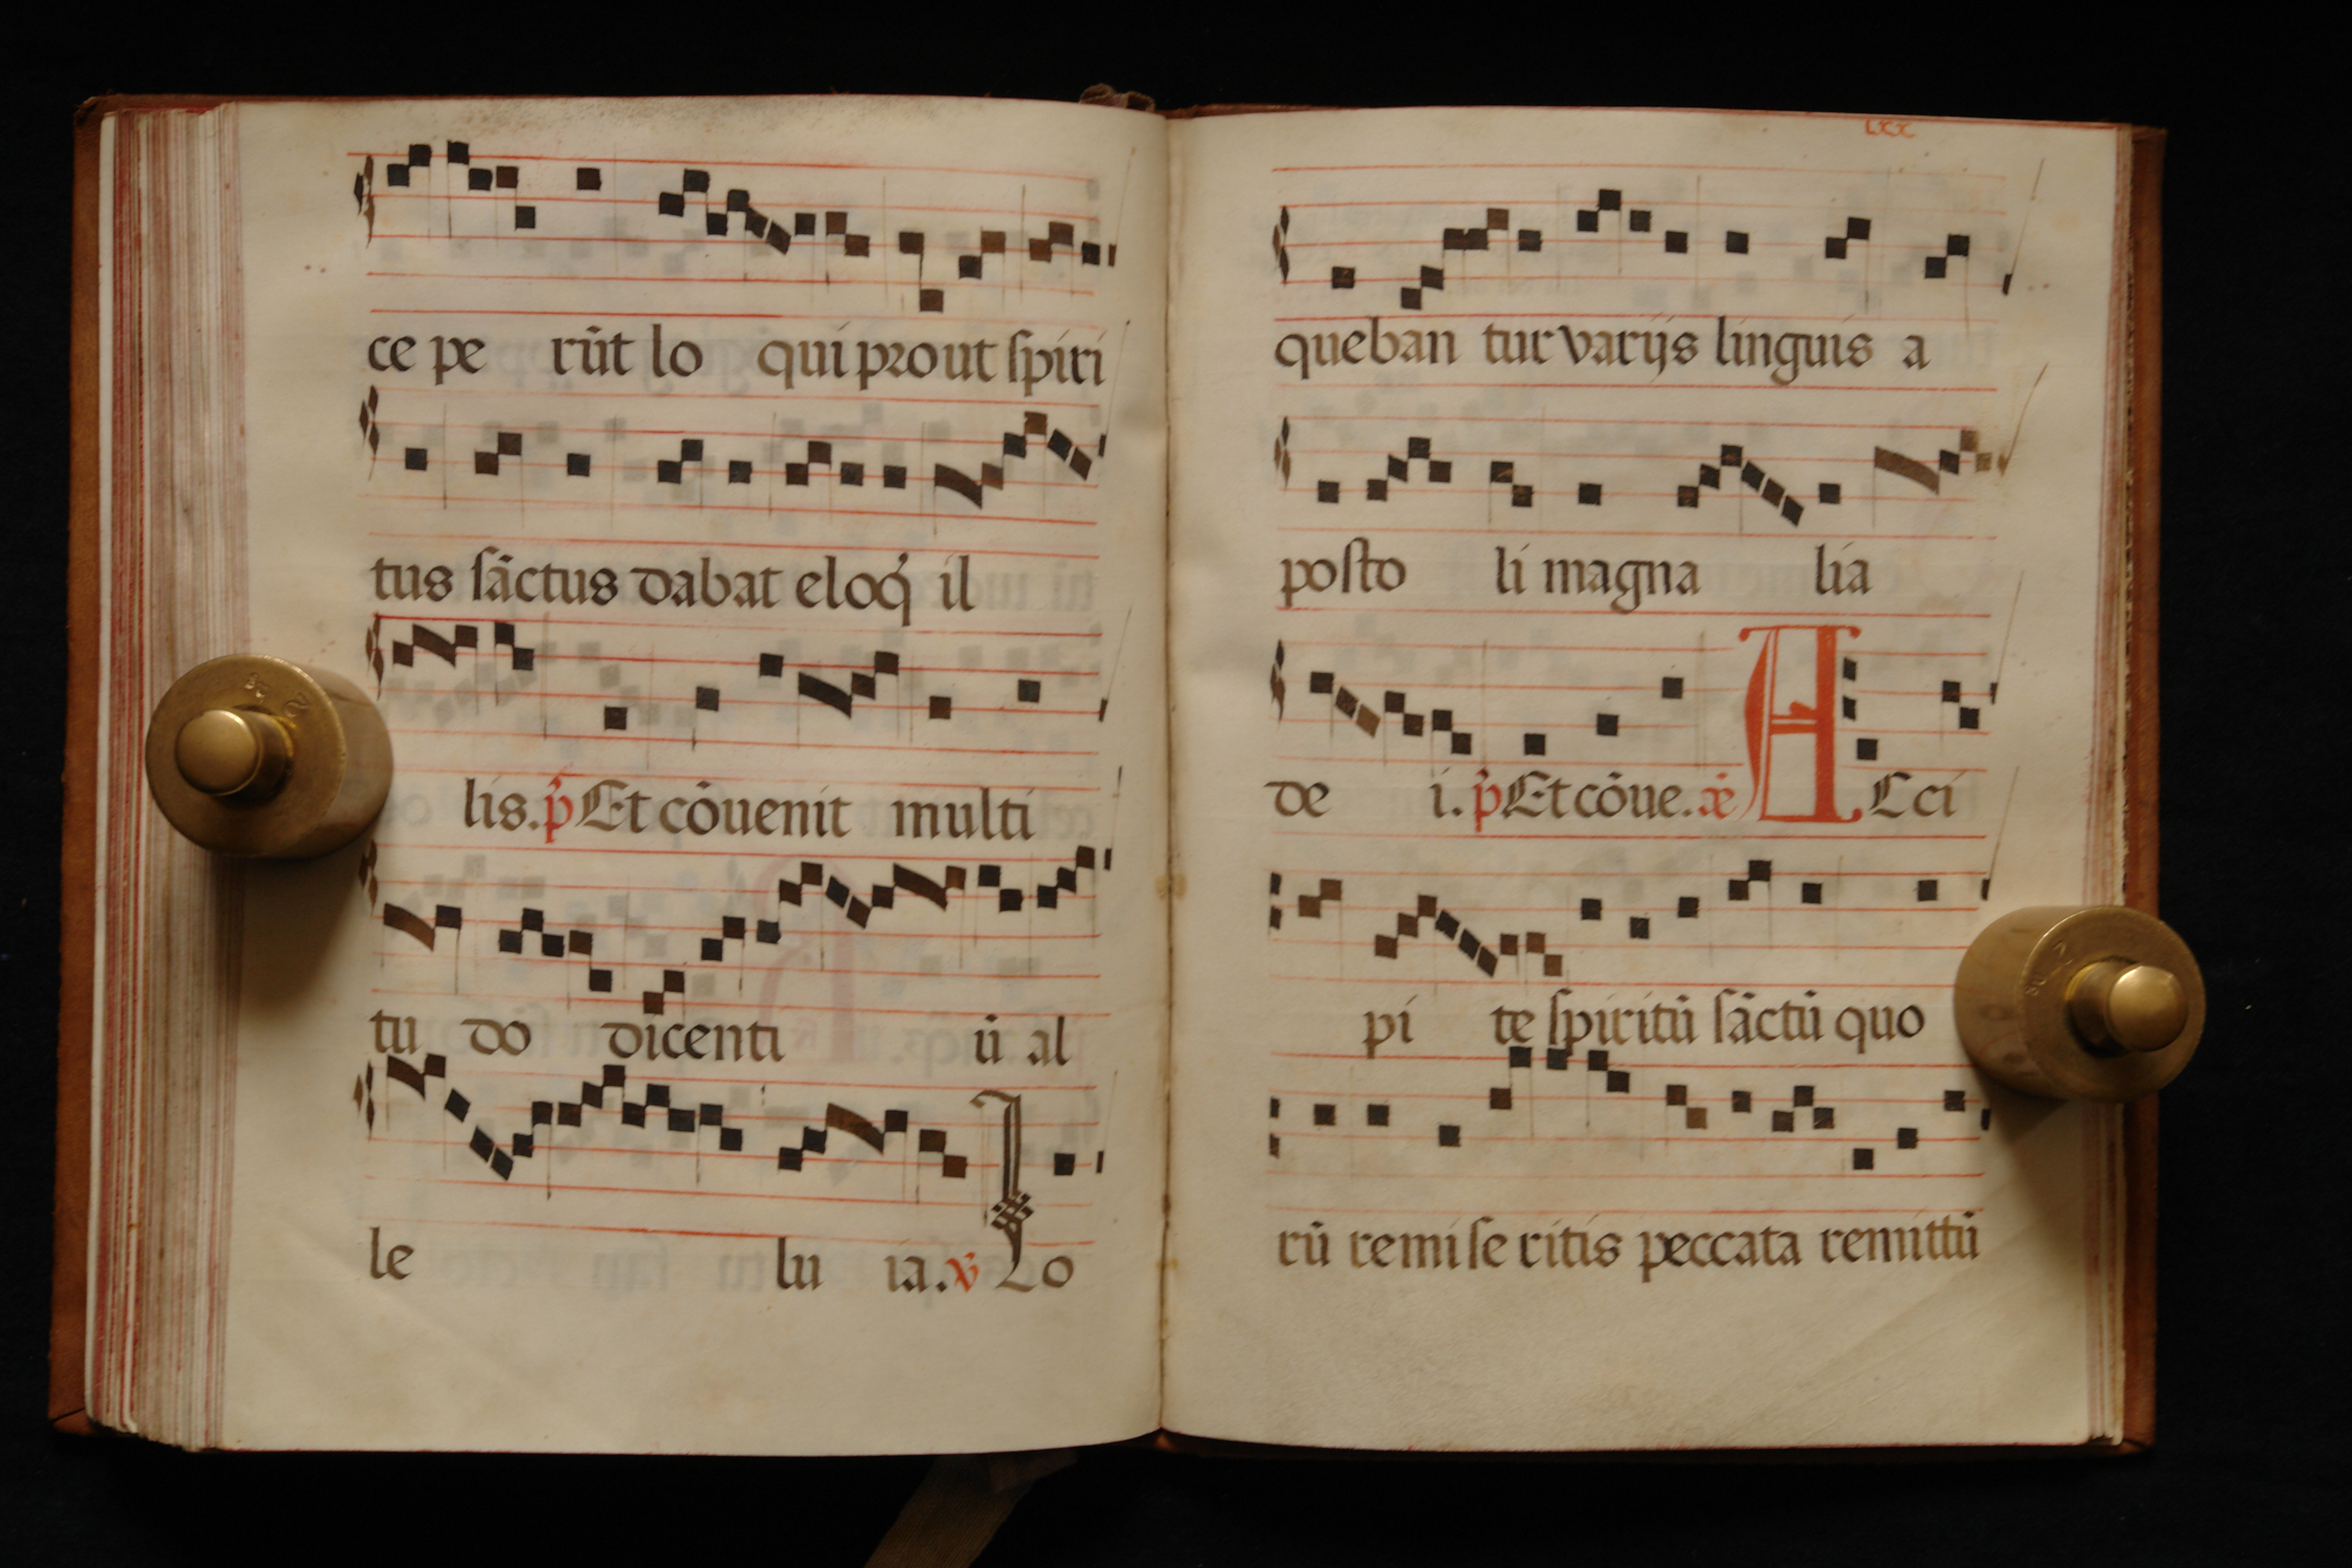 ce pe rūt lo qui prout spiri
tus sāctus dabat eloq̇ il
lis. p̄ Et cōuenit multi
tu do dicenti ū al
le lu ia. v̄ Lo
lxx
queban tur varijs linguis a
posto li magna lia
de i. p̄ Et cōue. A Cci
pi te spiritū sāctū quo
rū remi se ritis peccata remittū